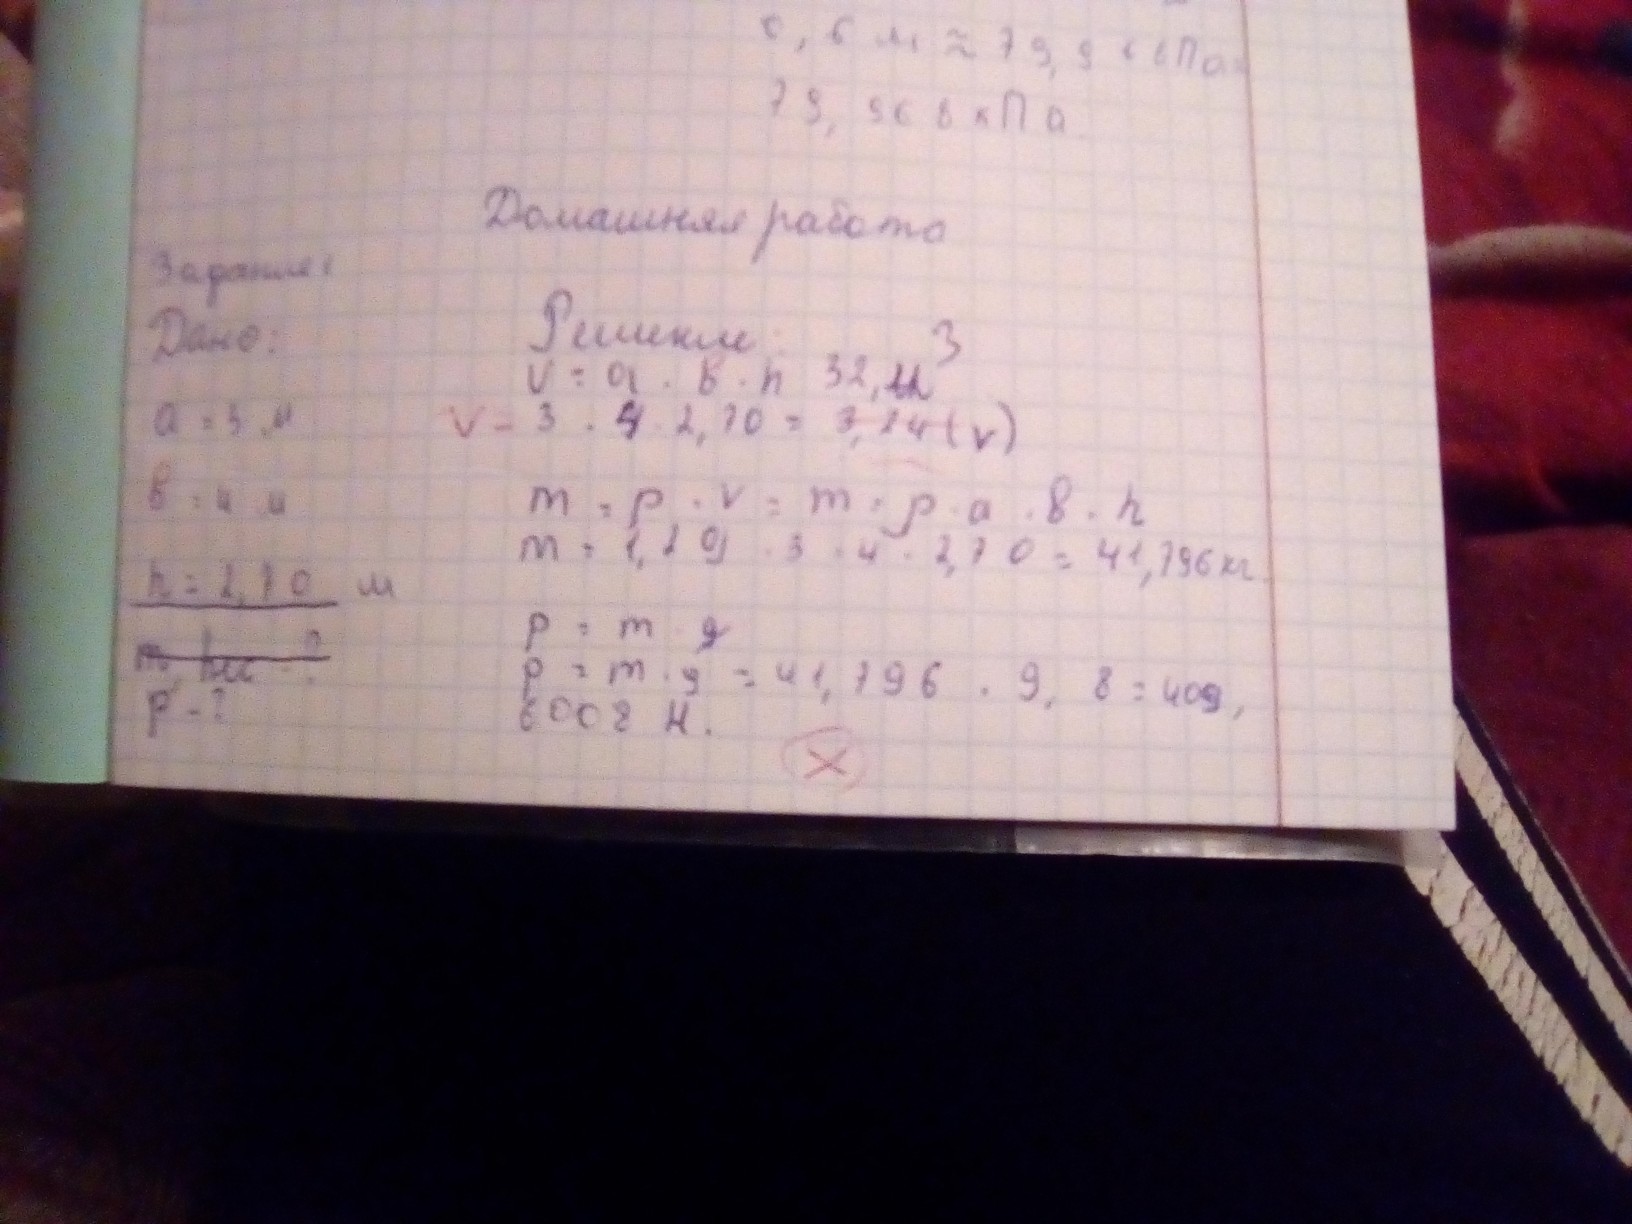 0,6 м ≈ 79,9 6 кПа=
79,968 кПа
Домашняя работа
Задание:
Дано:
a = 3 м
в = 4 м
h = 2,70 м
P - ?
Решение:
V = a · b · h 32,4 м³
V = 3 · 4 · 2,70 = 3,24 (v)
m = p · v = m = p · a · в · h
m = 1,29 · 3 · 4 · 2,70 = 41,796 кг
p = m · g
p = m · g = 41,796 · 9,8 = 409,
6008 Н.